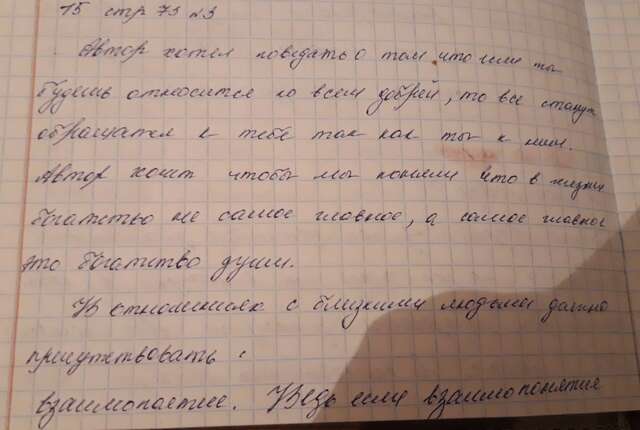 15 стр 73 №3
Автор хотел поведать о том что если ты
будешь относится ко всем добрей, то все станут
обращатся к тебе так как ты к ним.
Автор хочет чтобы мы поняли что в жизни
богатство не самое главное, а самое главное
это богатство души.
В отношениях с близкими людьми должно
присутствовать :
взаимопоятие. Ведь если взаимопонятие